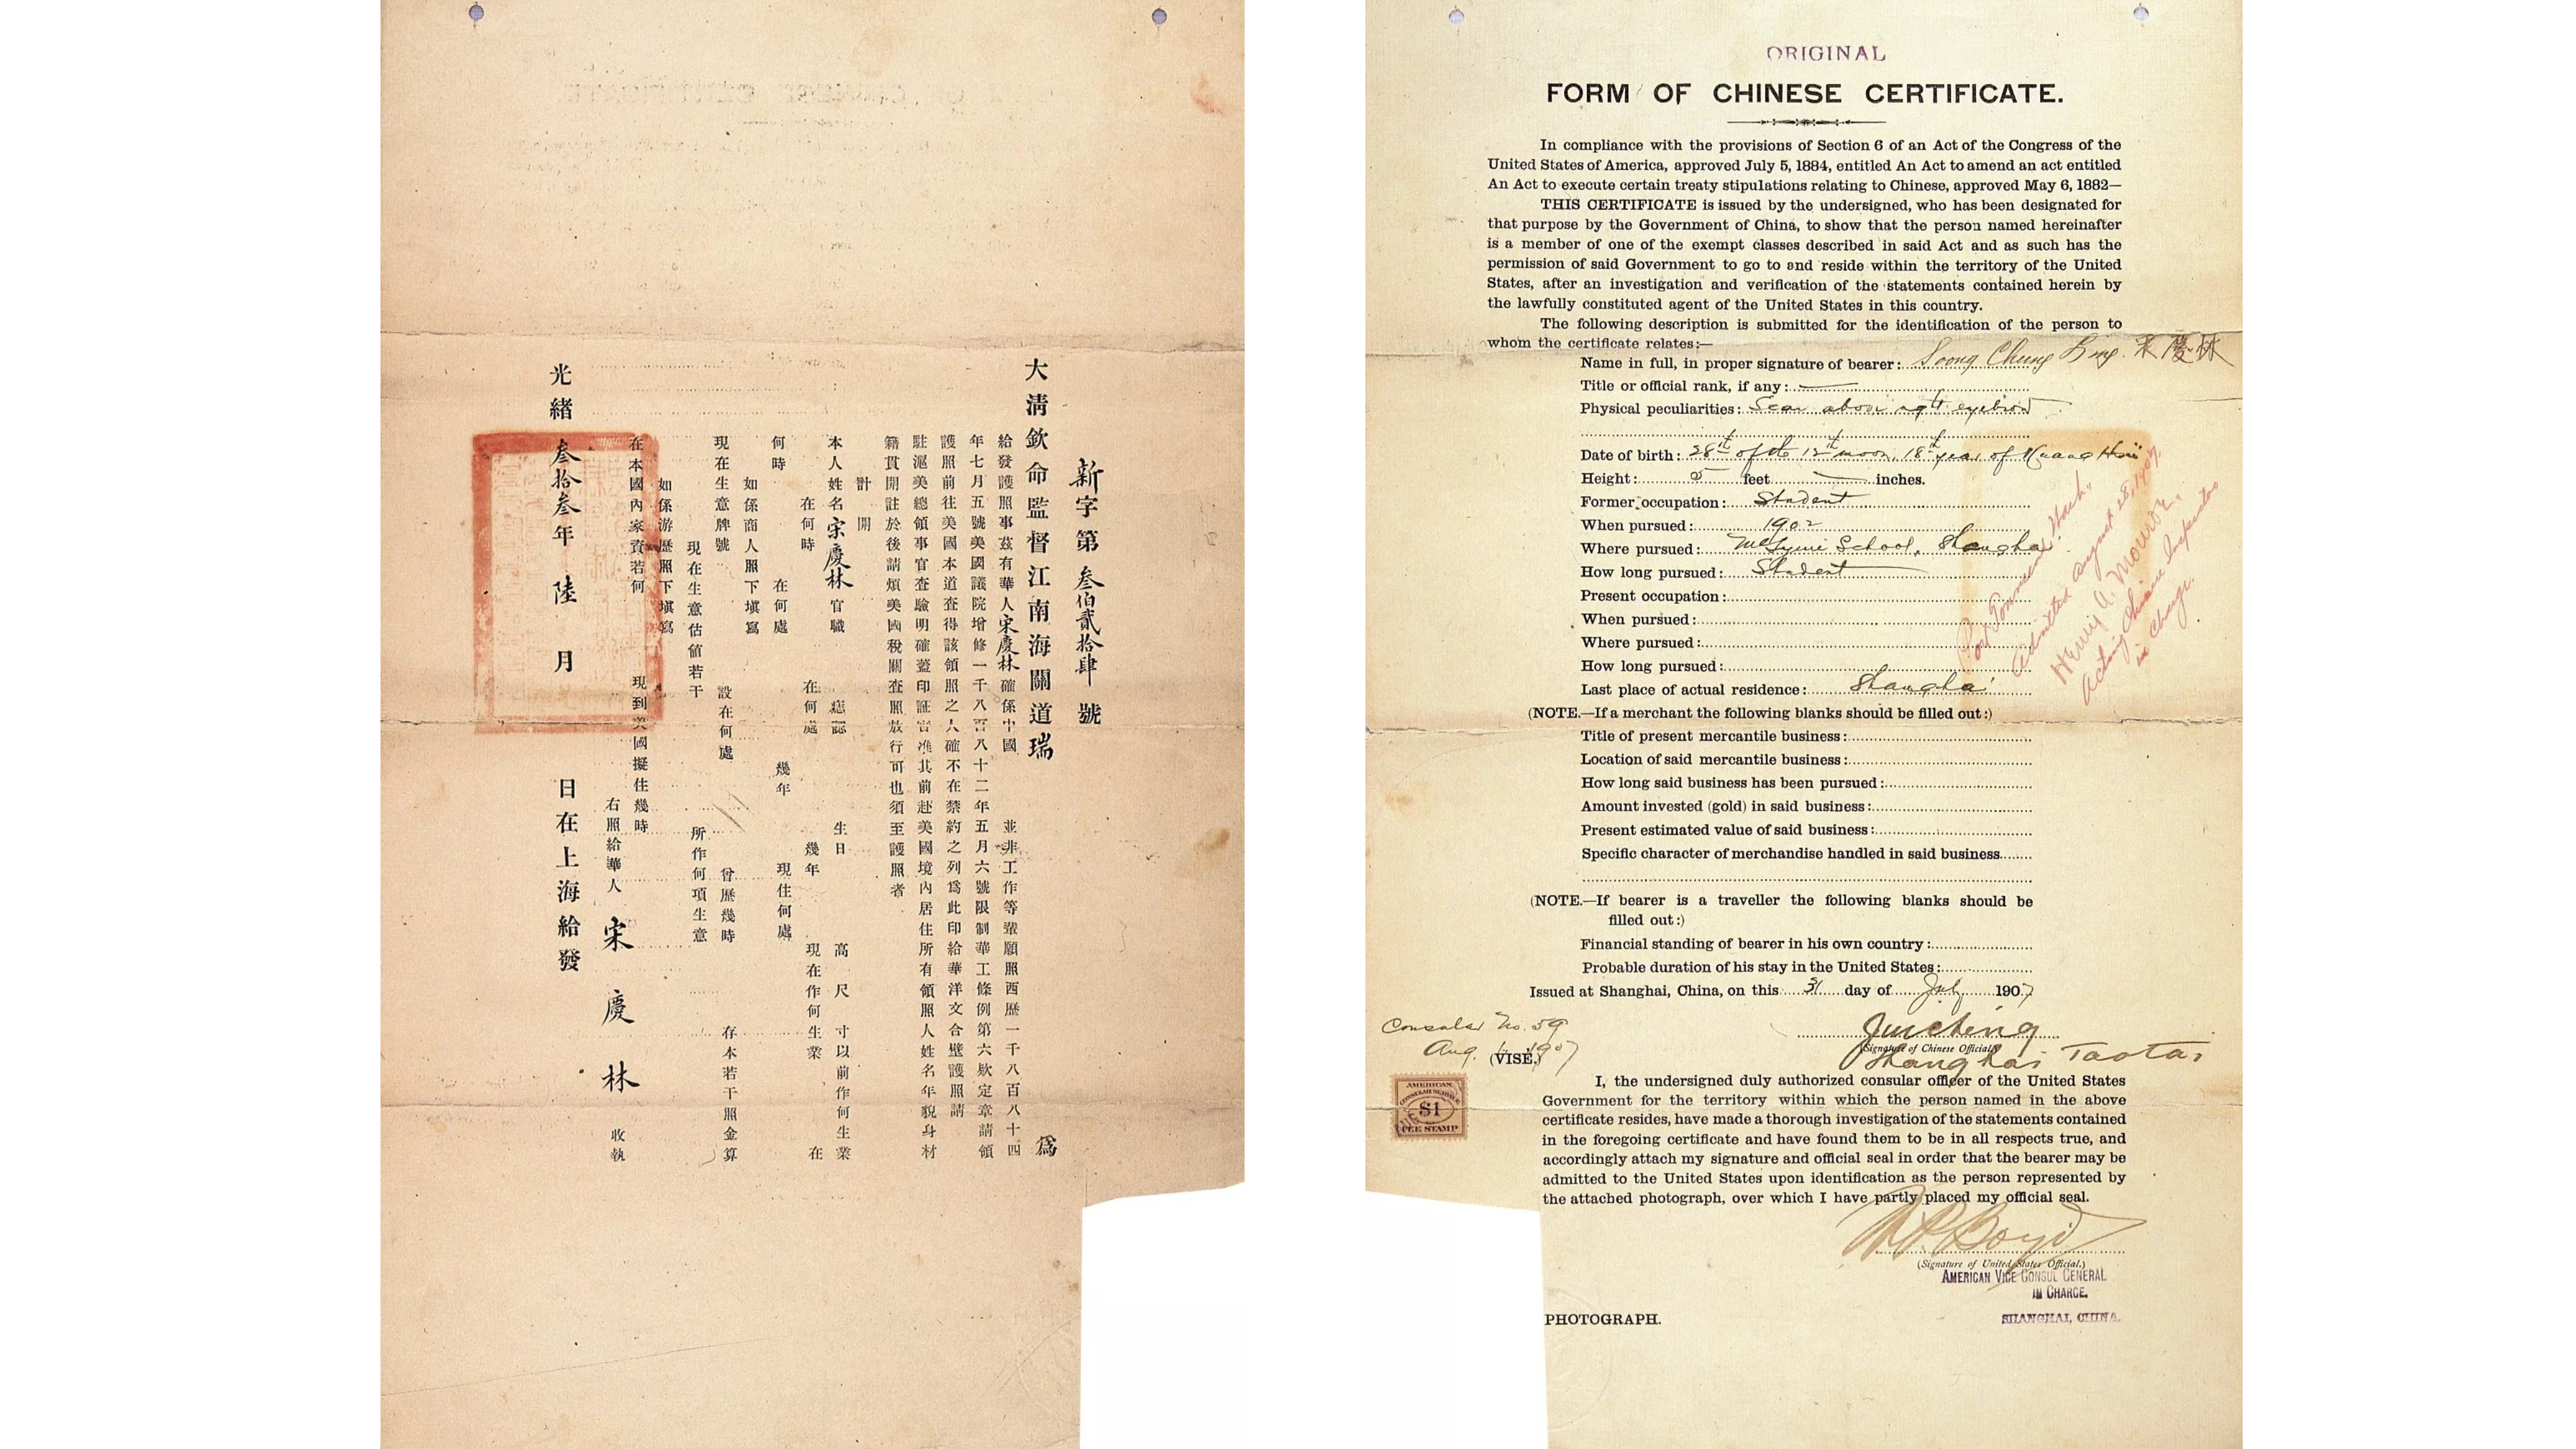 新字第叁佰貳拾肆號
大清欽命監督江南海關道瑞 爲
給發護照事茲有華人宋慶林確係中國 並非工作等輩願照西歷一千八百八十四
年七月五號美國議院增修一千八百八十二年五月六號限制華工條例第六欵定章請領
護照前往美國本道查得該領照之人確不在禁約之列爲此印給華洋文合璧護照請
駐滬美總領事官查驗明確蓋印証 准其前赴美國境內居住所有領照人姓名年貌身材
籍貫開註於後請煩美國稅關查照放行可也須至護照者
計開
本人姓名宋慶林官職 痣誌 生日 高 尺 寸以前作何生業
在何時 在何處 幾年 現在作何生業 在
何時 在何處 幾年 現住何處
如係商人照下塡寫
現在生意牌號 設在何處 曾歷幾時 存本若干照金算
現在生意估値若干 所作何項生意
如係游歷照下塡寫
在本國內家資若何 現到美國擬住幾時
右照給華人 宋慶林 收執
光緒叁拾叁年陸月 日在上海給發
ORIGINAL
FORM OF CHINESE CERTIFICATE.
In compliance with the provisions of Section 6 of an Act of the Congress of the
United States of America, approved July 5, 1884, entitled An Act to amend an act entitled
An Act to execute certain treaty stipulations relating to Chinese, approved May 6, 1882—
THIS CERTIFICATE is issued by the undersigned, who has been designated for
that purpose by the Government of China, to show that the person named hereinafter
is a member of one of the exempt classes described in said Act and as such has the
permission of said Government to go to and reside within the territory of the United
States, after an investigation and verification of the statements contained herein by
the lawfully constituted agent of the United States in this country.
The following description is submitted for the identification of the person to
whom the certificate relates:—
Name in full, in proper signature of bearer: Soong Chung Ling. 宋慶林
Title or official rank, if any: —
Physical peculiarities: Scar above right eyebrow
Date of birth: 28th of the 12th moon, 18th year of Kuang Hsü
Height: 5 feet — inches.
Former occupation: Student
When pursued: 1902
Where pursued: McTyeire School, Shanghai
How long pursued: Student
Present occupation:
When pursued:
Where pursued:
How long pursued:
Last place of actual residence: Shanghai
Port Townsend Wash.,
Admitted August 28, 1907.
Henry A. Monroe.
Acting Chinese Inspector
in Charge.
(NOTE.—If a merchant the following blanks should be filled out:)
Title of present mercantile business:
Location of said mercantile business:
How long said business has been pursued:
Amount invested (gold) in said business:
Present estimated value of said business:
Specific character of merchandise handled in said business
(NOTE.—If bearer is a traveller the following blanks should be
filled out:)
Financial standing of bearer in his own country:
Probable duration of his stay in the United States:
Issued at Shanghai, China, on this 31 day of July 1907
Consular No. 59
Aug. 1, 1907
(VISÉ.)
Juicheng
(Signature of Chinese Official.)
Shanghai Taotai
AMERICAN
CONSULAR SERVICE
$1
FEE STAMP
I, the undersigned duly authorized consular officer of the United States
Government for the territory within which the person named in the above
certificate resides, have made a thorough investigation of the statements contained
in the foregoing certificate and have found them to be in all respects true, and
accordingly attach my signature and official seal in order that the bearer may be
admitted to the United States upon identification as the person represented by
the attached photograph, over which I have partly placed my official seal.
Boyd
(Signature of United States Official.)
AMERICAN VICE CONSUL GENERAL
IN CHARGE.
SHANGHAI, CHINA.
PHOTOGRAPH.